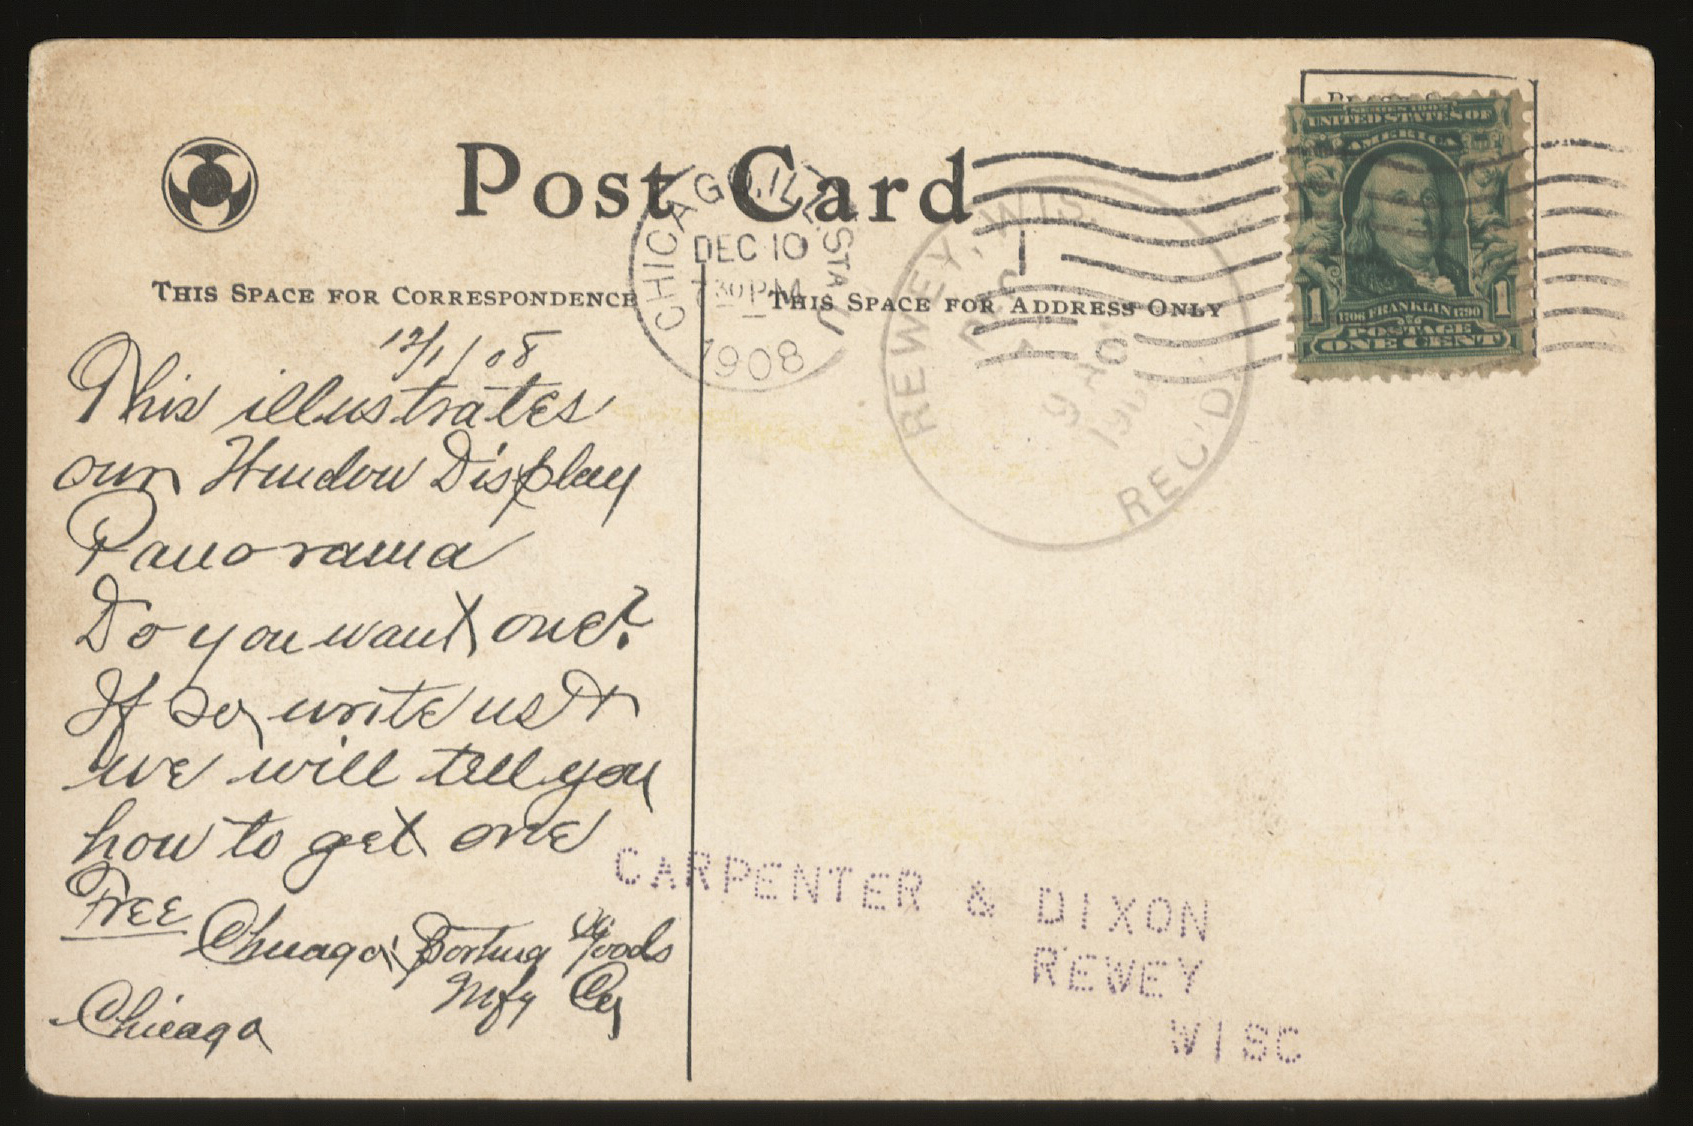 Post Card
THIS SPACE FOR CORRESPONDENCE
THIS SPACE FOR ADDRESS ONLY
CHICAGO, ILL. STA
DEC 10
7 30 PM
1908
REWEY, WIS.
REC'D.
SERIES 1902
UNITED STATES OF
AMERICA
1 1
1706 FRANKLIN 1790
POSTAGE
ONE CENT
12/1/08
This illustrates
our Window Display
Panorama
Do you want one?
If so, write us &
we will tell you
how to get one
Free
Chicago Sporting Goods
Mfg Co,
Chicago
CARPENTER & DIXON
REWEY
WISC